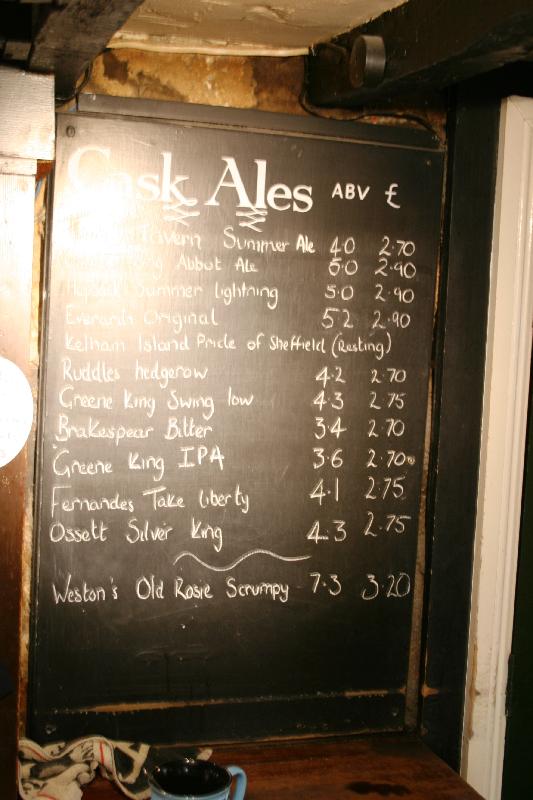 Cask Ales ABV £
Tavern Summer Ale 4.0 2.70
Abbot Ale 5.0 2.90
Hopback Summer lightning 5.0 2.90
Everards Original 5.2 2.90
Kelham Island Pride of Sheffield (Resting)
Ruddles hedgerow 4.2 2.70
Greene King Swing low 4.3 2.75
Brakespear Bitter 3.4 2.70
Greene King IPA 3.6 2.70
Fernandes Take liberty 4.1 2.75
Ossett Silver King 4.3 2.75
Weston's Old Rosie Scrumpy 7.3 3.20